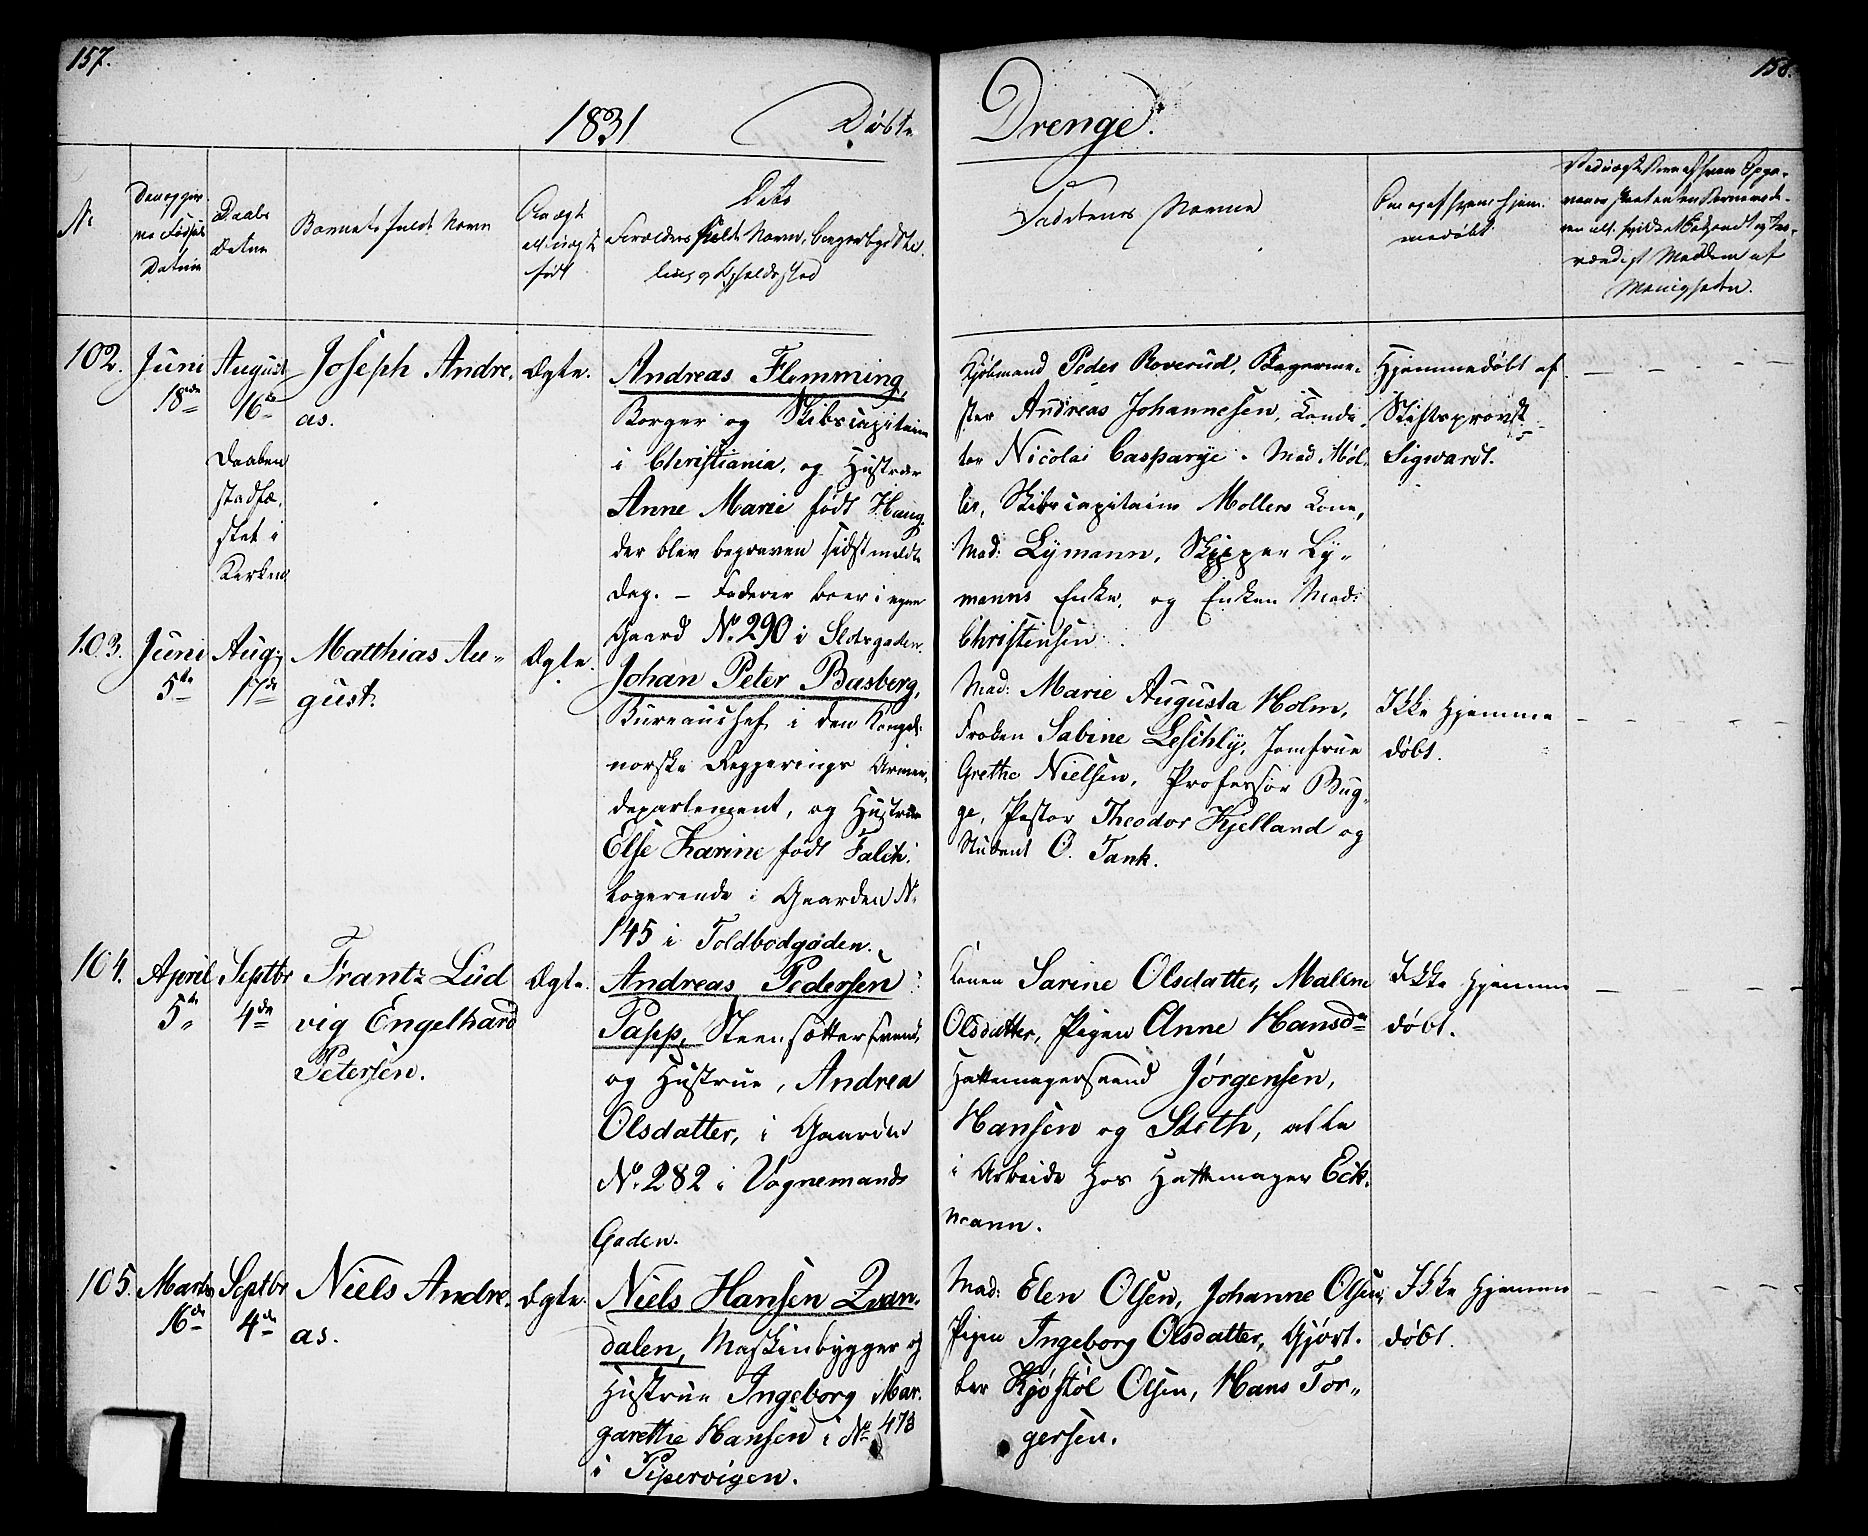 157.
158.
1831 Døbte Drenge.
No
Den opgiv-
ne Fødsels
Datum
Daabs
Datum
Barnets fulde Navn
Om ægte
ell. uægte
født
Dets
Forældres fulde Navn, borgerlige Stil-
ling og Opholdssted
Faddernes Navne
Om og af hvem hjem-
medøbt
102.
Juni
18de
August
16de
Daaben
stadfæ-
stet i
Kirken
Joseph Andre-
as.
Ægte.
Andreas Flemming,
Borger og Skibscapitain
i Christiania, og Hustrue
Anne Marie født Haug
der blev begraven sidstmeldte
Dag. – Faderen boer i egen
Gaard No. 290 i Slotsgaden.
Kjøbmand Peder Roverud, Bagerme-
ster Andreas Johannesen,
Nicolai Casparye. Mad. Møl-
ler, Skibscapitain Mollers Kone,
Mad: Lÿmann, Skipper Lÿ-
manns Enke, og Enken Mad:
Christensen
Hjemmedøbt af
Stiftsprovst
Sigwardt.
103.
Juni
5te
Aug:
17de
Matthias Au-
gust.
Ægte.
Johan Peter Basberg,
Bureauchef i den Kongel:
norske Regjerings Armee-
departement, og Hustrue
Else Karine født Falch.
Logerende i Gaarden No
145 i Toldbodgaden.
Mad: Marie Augusta Holm,
Frøken Sabine Leschlÿ, Jomfrue
Grethe Nielsen, Professor Bug-
ge, Pastor Theodor Kjelland og
Student O. Tank.
Ikke hjemme
døbt.
104.
April
5te
Septbr
4de
Frantz Lud
vig Engelhard
Petersen.
Ægte.
Andreas Pedersen
Papp, Steensættersvend,
og Hustrue, Andrea
Olsdatter, i Gaarden
No. 282 i Vognemands
Gaden.
Konen Sarine Olsdatter, Malene
Olsdatter, Pigen Anne Hansdr
Hattemagersvend Jörgensen,
Hansen og Steth, alle
i Arbeide hos Hattemager Eck-
mann.
Ikke hjemme
døbt.
105.
Marts
16de
Septbr
4de
Niels Andre-
as.
Ægte.
Niels Hansen Qvan-
dalen, Maskinbygger og
Hustrue Ingeborg Mar-
garethe Hansen i No 473
i Pipervigen.
Mad: Elen Olsen, Johanne Olsen,
Pigen Ingeborg Olsdatter, Gjört-
ler Kjöstöl Olsen, Hans Tor-
gersen.
Ikke hjemme
døbt.